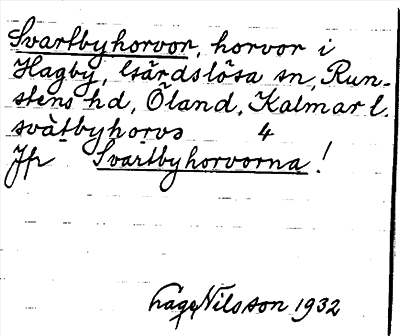 Svartbyhorvor, horvor i
Hagby, Gärdslösa sn, Run-
stens hd, Öland, Kalmar l.
svàṭbyhorvs 4
Jfr Svartbyhorvorna!
Åge Nilsson 1932